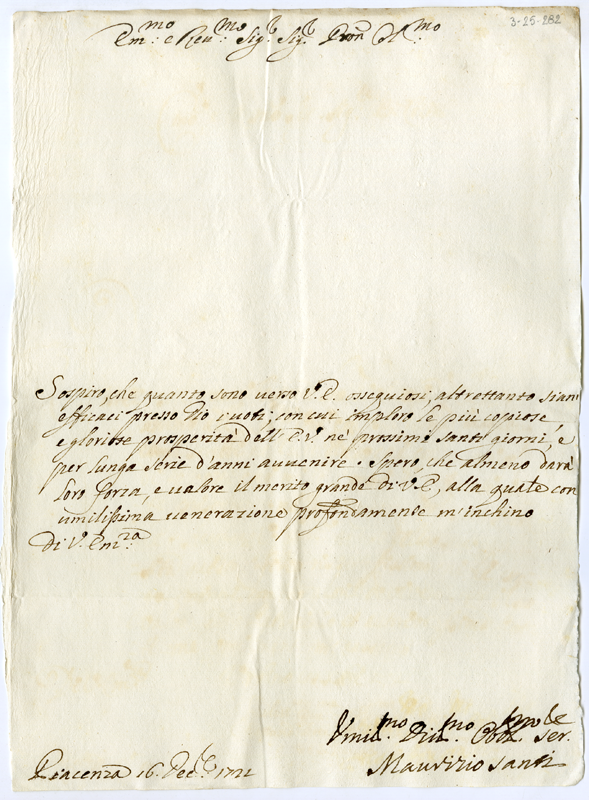 3-25-282
Em:mo e Reu:mo Sig:r Sig:r Pron Col:mo
Sospiro, che quanto sono uerso V.E. ossequiosi, altrettanto sian
efficaci presso Dio i uoti, con cui imploro le più copiose
e gloriose prosperità dell' E.V. ne' prossimi santi giorni, e
per lunga serie d'anni auuenire. Spero, che almeno darà
loro forza, e ualore il merito grande di V.E., alla quale con
umilissima uenerazione profondamente m'inchino
Di V. Em:za
Vmil:mo Diu:mo Obb:mo Ser.
Piacenza 16. Dec:e 1721
Maurizio Santi